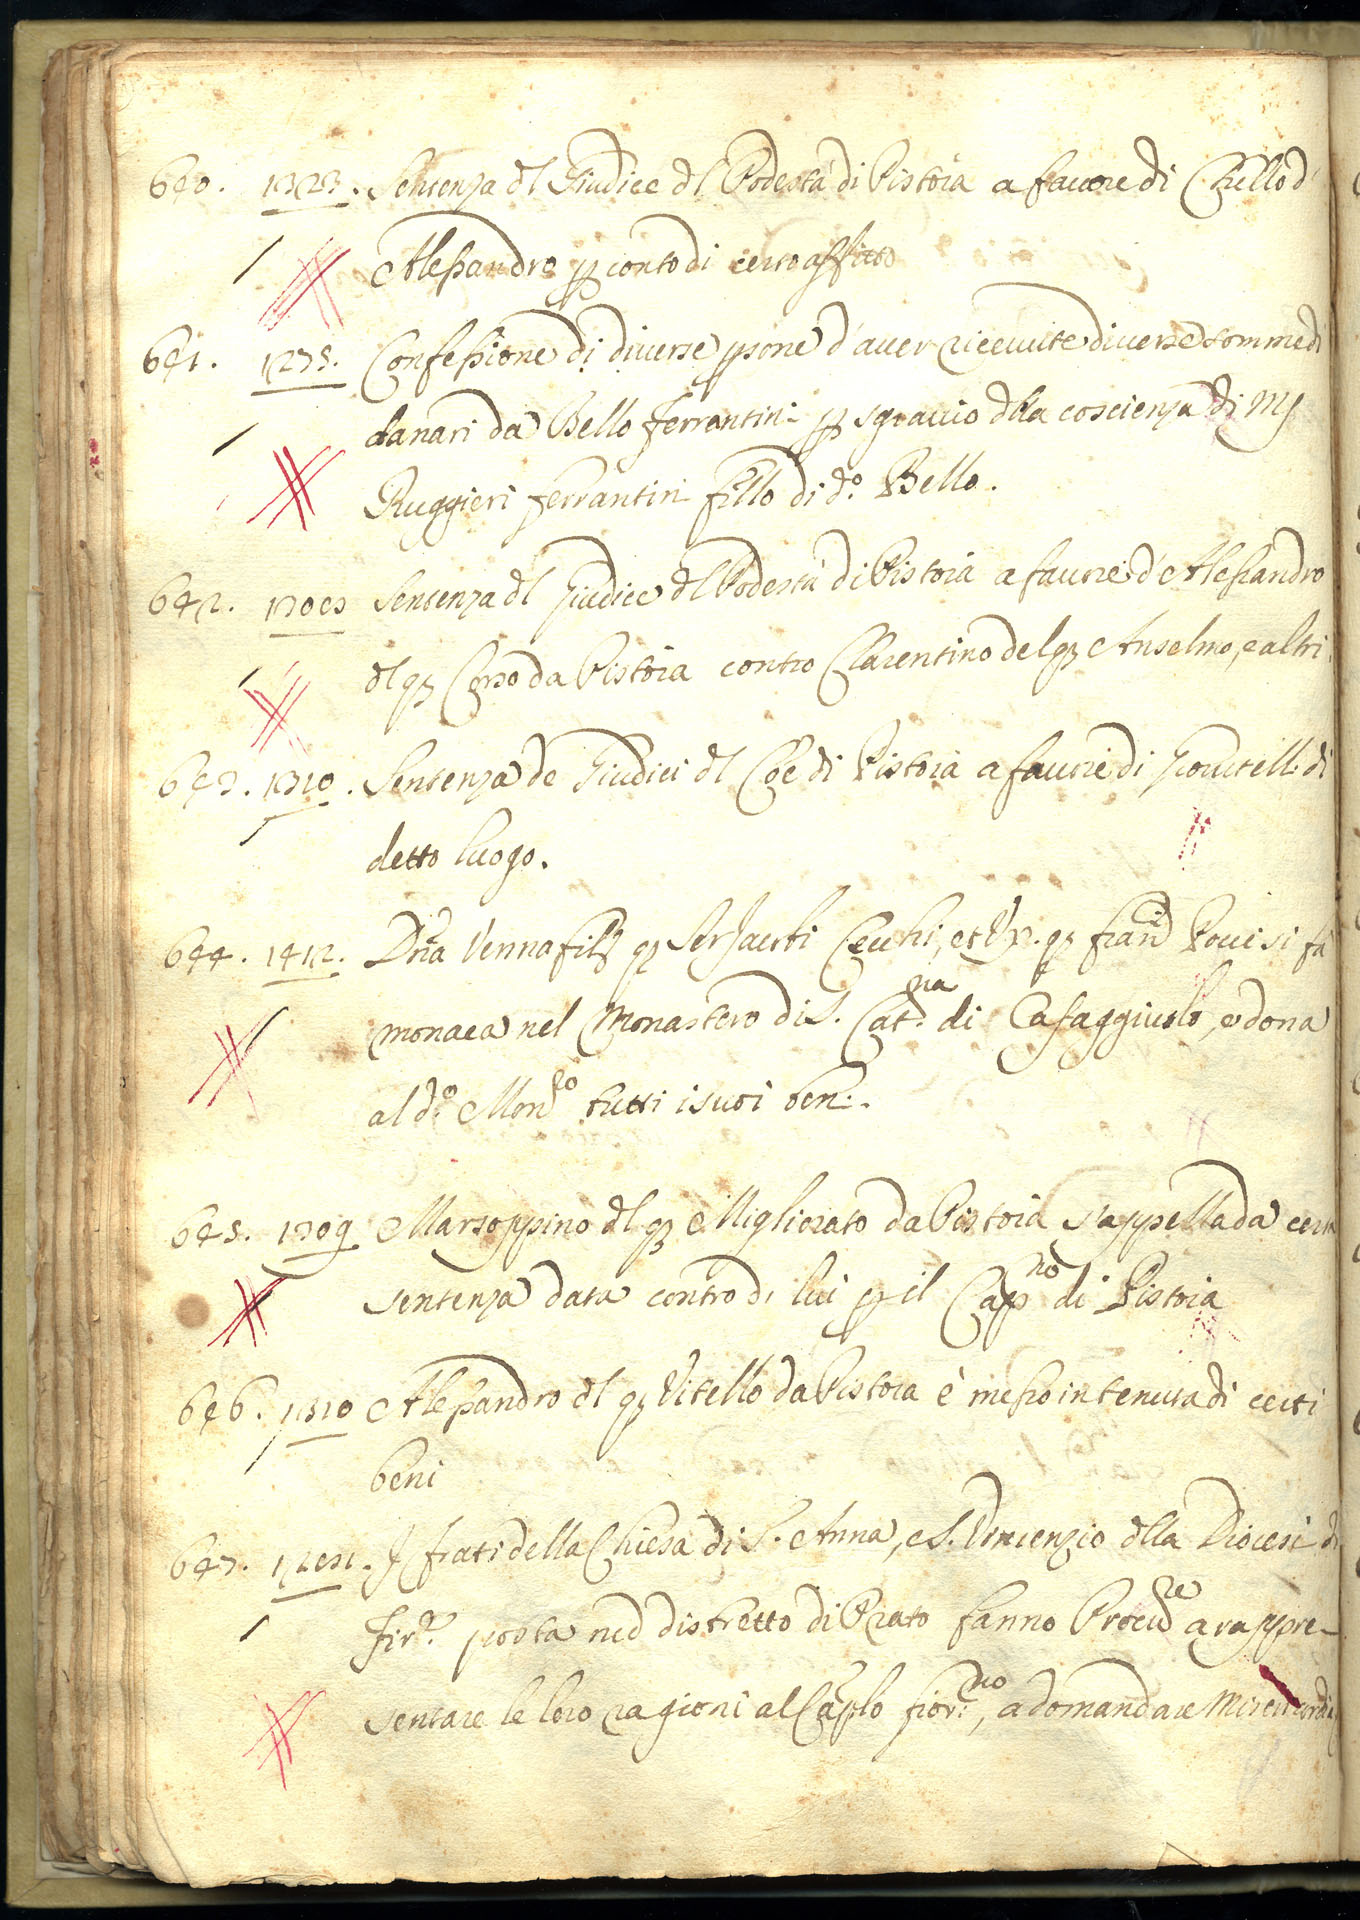 640. 1323. Sentenza dl Giudice dl Podestà di Pistoia a favore di Chello d'
Alessandro p conto di certo affitto
641. 1275. Confessione di diverse psone d'aver ricevute diverse somme di
danari da Bello ferrantini p sgravio dlla coscienza di M
Ruggieri ferrantini fillo di d.o Bello.
642. Sentenza dl Giudice dl Podestà di Pistoia a favore d'Alessandro
dl q Corso da Pistoia contro Clarentino del q Anselmo, e altri.
643. 1310. Sentenza de Giudici dl Coe di Pistoia a favore di di
detto luogo.
644. 1412. Dna Venna fil q Ser Jacobi Cecchi, et Vx. q si fa
monaca nel Monastero di S. Cat.na di Cafaggiuolo, e dona
al d.o Mon.ro tutti i suoi beni.
645. 1309 Marsoppino dl q Migliorato da Pistoia s'appella da certa
sentenza data contro di lui p il Cap.no di Pistoia
646. 1310 Alessandro dl q Vitello da Pistoia è messo in tenuta di certi
beni
647. I frati della Chiesa di S. Anna, e S. Vincenzio dlla Diocesi di
fir.e posta nel distretto di Prato fanno Procu.re a rappre-
sentare le loro ragioni al Caplo fior.no, a domandare misericordia